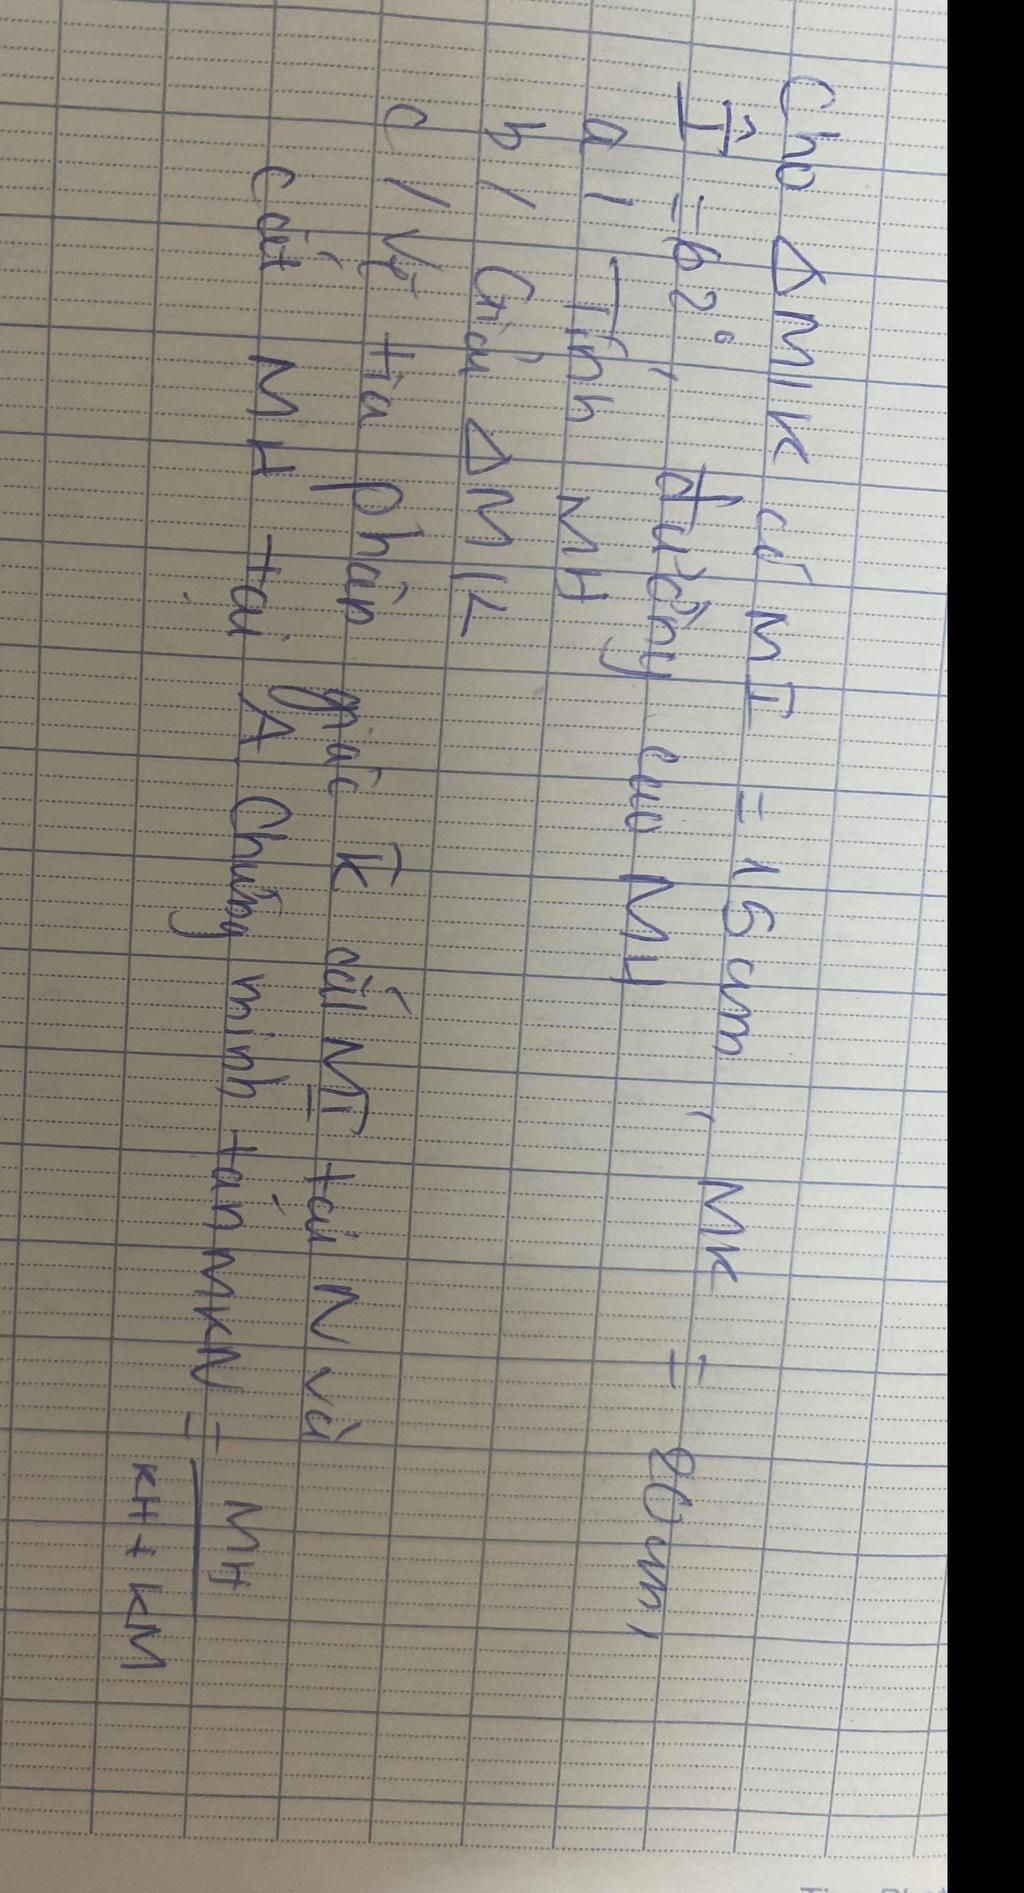 Cho Δ MIK có MI = 15 cm, MK = 20 cm,
Î = 62°, đường cao MH
a/ Tính MH
b/ Giải Δ MIK
c/ Vẽ tia phân giác K cắt MI tại N và
cắt MH tại A Chứng minh tan MKN = MH / KH + KM